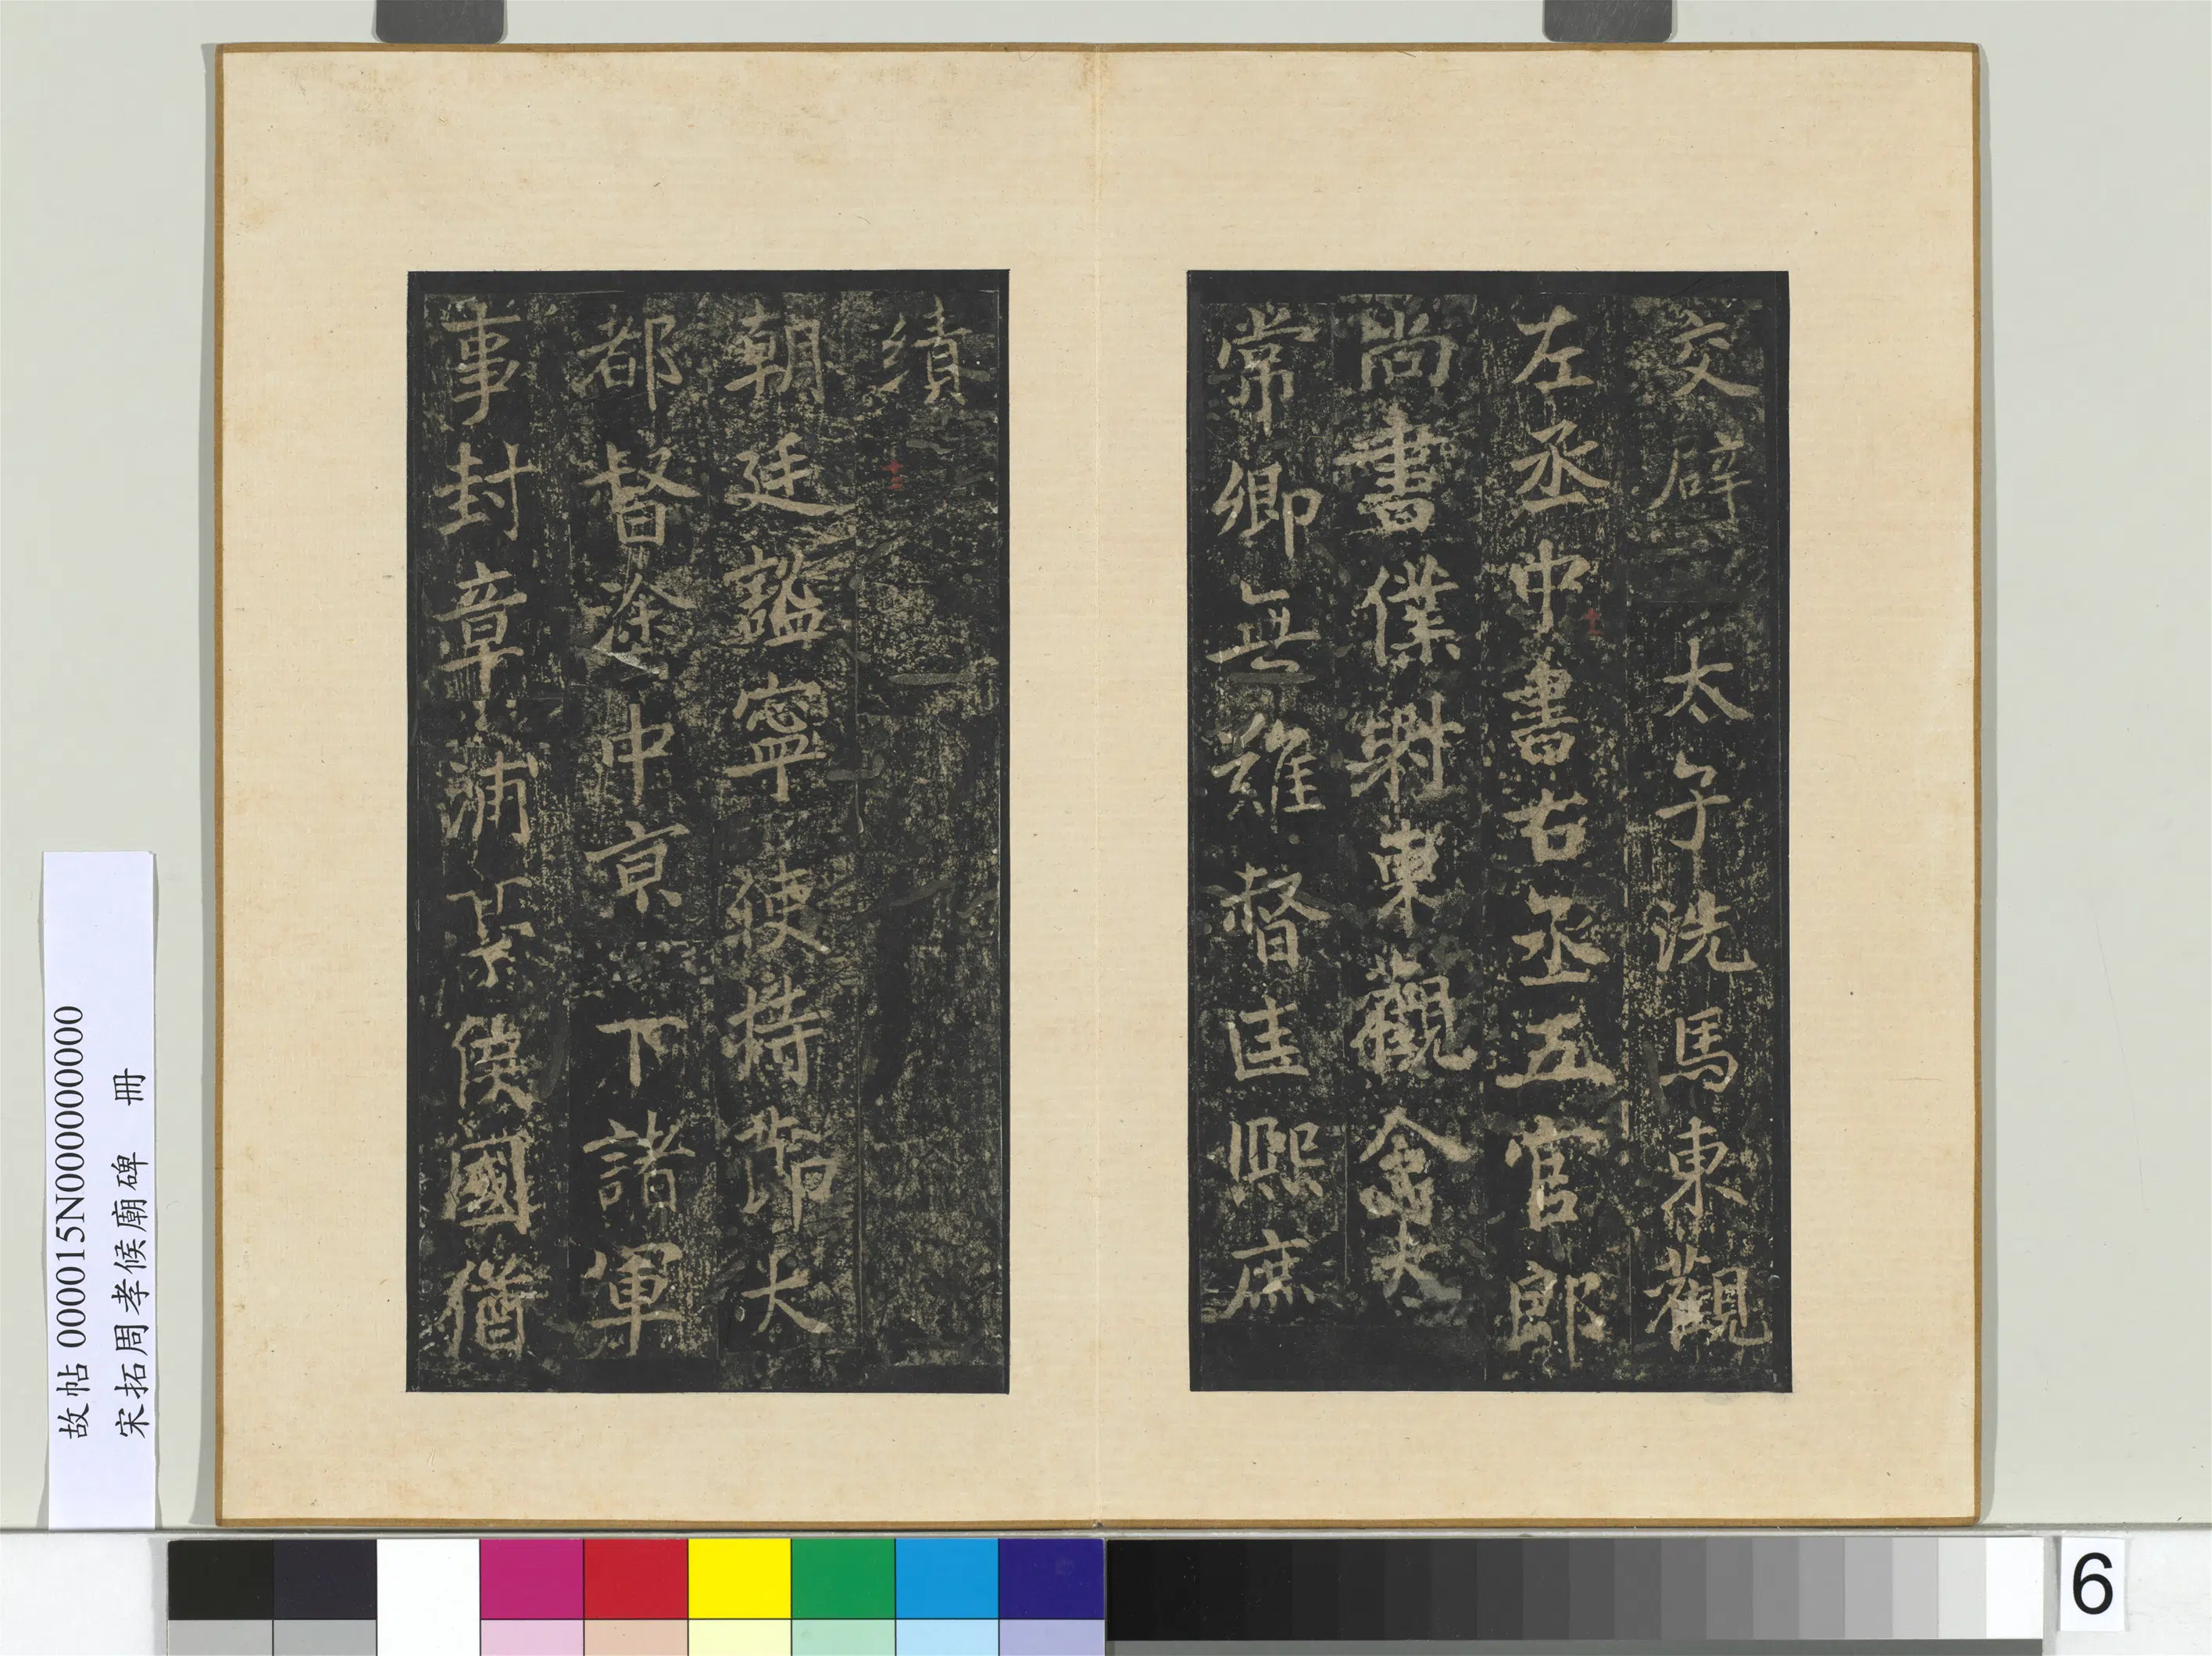 交辟太子洗馬東觀
左丞中書右丞五官郎
尚書僕射東觀令大
常卿無難督匡熙庶
績
朝廷謐寧使持節大
都督塗中亰下諸軍
事封章浦侯國僭
故帖 000015N000000000
宋拓周孝候廟碑 冊
6